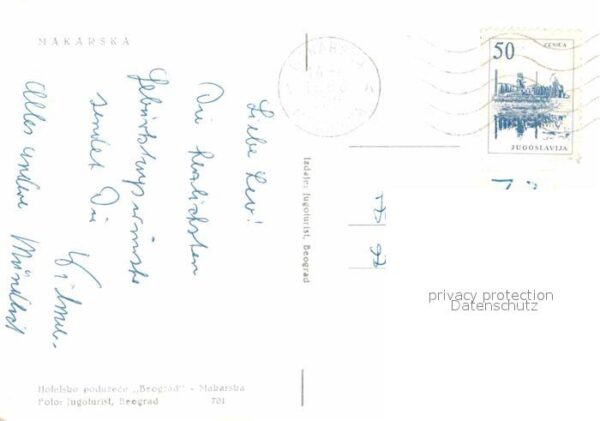 MAKARSKA
Liebe Lev!
Die herzlichsten
Geburtstagswünsche
sendet Dir
Alles andere Mündlich
Hotelsko poduzeće „Beograd" - Makarska
Foto: Jugoturist, Beograd 701
Izdaje: Jugoturist, Beograd
50
ZENICA
JUGOSLAVIJA
privacy protection
Datenschutz